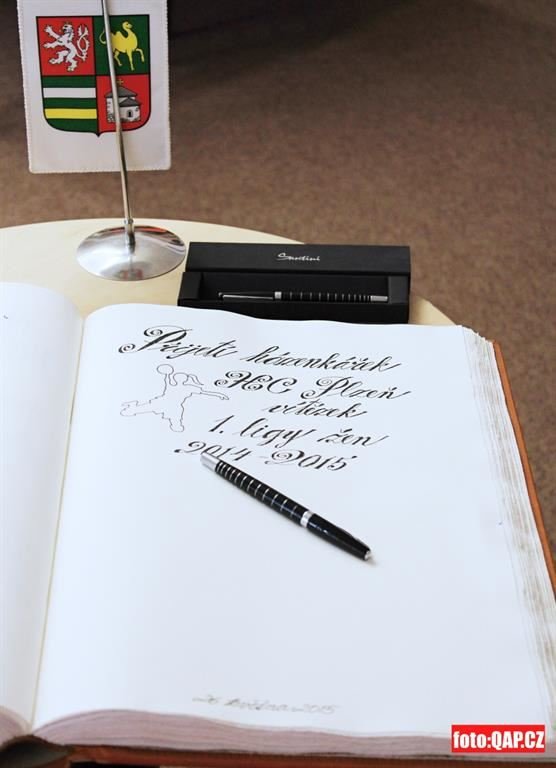 Santini
Přijetí házenkářek
HC Plzeň
vítězek
1. ligy žen
2014-2015
26. května 2015
foto:QAP.CZ